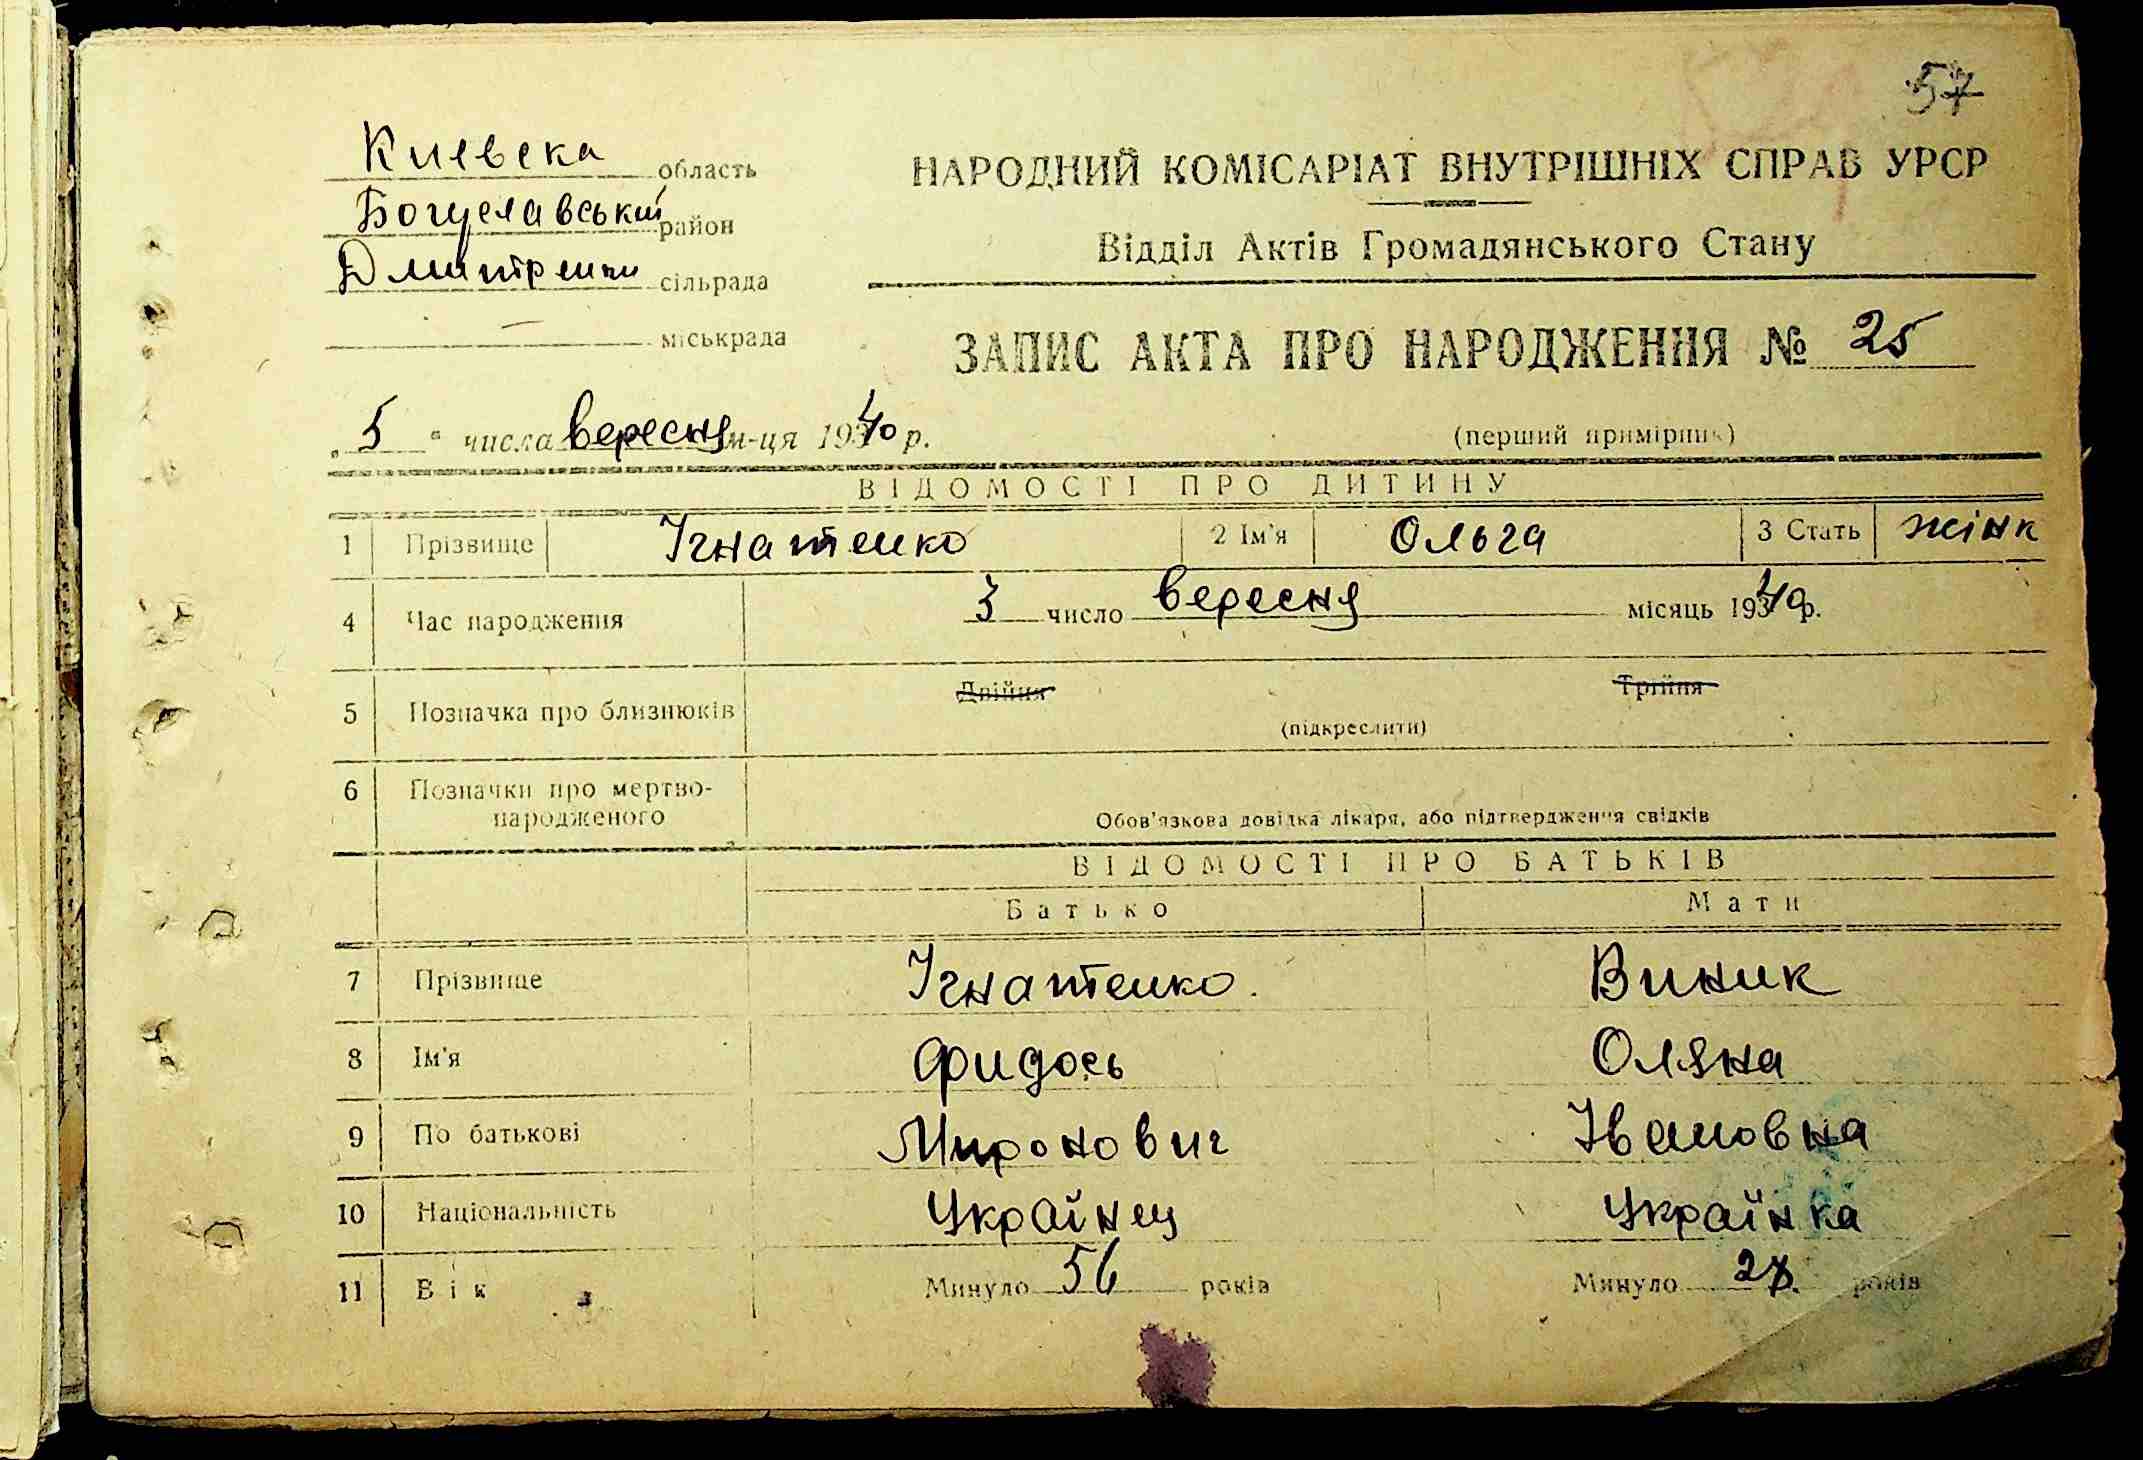 57
Киевска область
Богуславський район
сільрада
— міськрада
НАРОДНИЙ КОМІСАРІАТ ВНУТРІШНІХ СПРАВ УРСР
Відділ Актів Громадянського Стану
ЗАПИС АКТА ПРО НАРОДЖЕННЯ № 25
„5“ числа вересня м-ця 1940 р.
(перший примірник)
ВІДОМОСТІ ПРО ДИТИНУ
1 Прізвище Ігнатенко 2 Ім'я Ольга 3 Стать жінк
4 Час народження 3 число вересня місяць 1940 р.
5 Позначка про близнюків Двійня Трійня
(підкреслити)
6 Позначки про мертво-
народженого
Обов'язкова довідка лікаря, або підтвердження свідків
ВІДОМОСТІ ПРО БАТЬКІВ
Батько Мати
7 Прізвище Ігнатенко. Виник
8 Ім'я Фидось Оляна
9 По батькові Миронович Івановна
10 Національність Українец Українка
11 Вік Минуло 56 років Минуло років